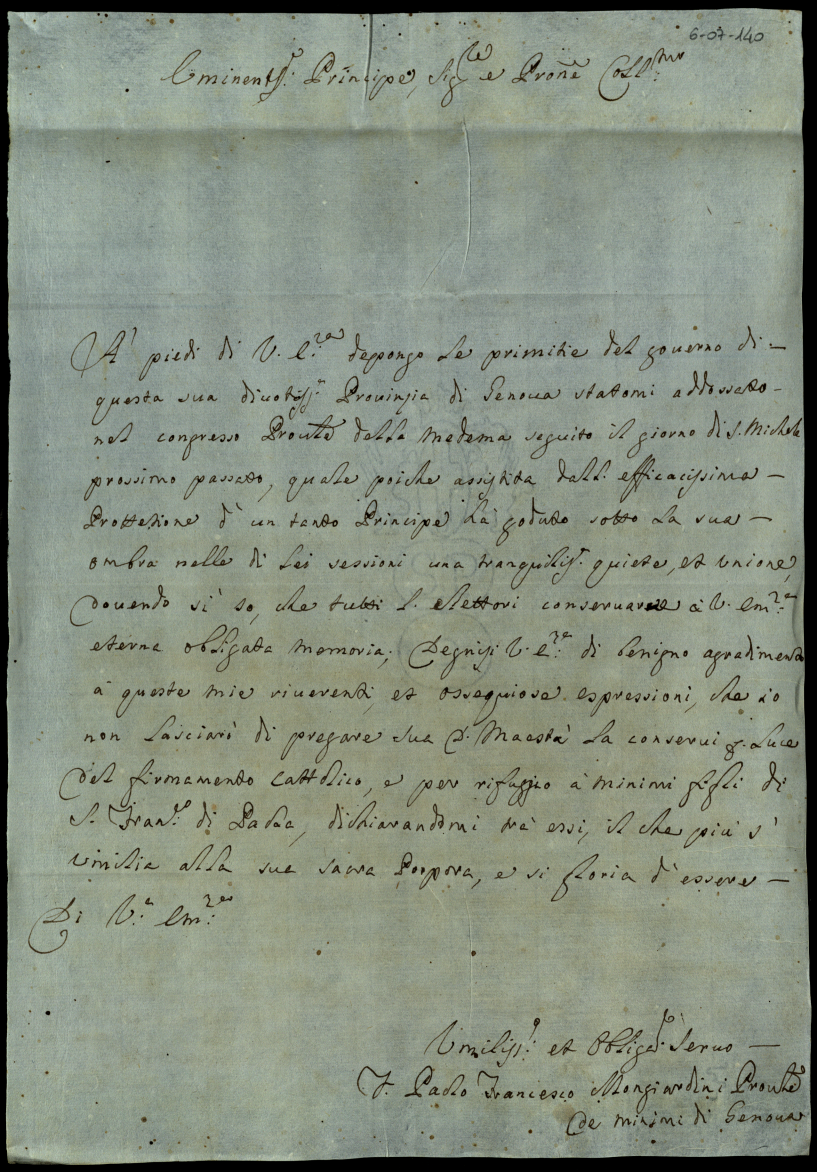 6-07-140
Eminentiss:º Principe, Sig:re e Pron̄e Coll:mo
A' piedi di V. E:za depongo le primitie del gouerno di -
questa sua diuotiss:a Prouinzia di Genoua stattomi addossatto -
nel congresso Prou̅le della medema seguito il giorno di S. Michele
prossimo passato, quale poiche assistita dall: efficacissima -
Prottetione d' un tanto Principe hà goduto sotto la sua -
ombra nelle di lei sessioni una tranquilis:a quiete, et unione,
douendo sì io, che tutti l. elettori conseruarne à V. Em:za
eterna obligata memoria; Degnisi V. E:za di benigno agradimento
à queste mie riuerenti, et ossequiose espressioni, che io
non lasciarò di pregare sua D. Maestà la conserui p. luce
del firmamento cattolico, e per rifuggio à minimi figli di
S. Fran:co di Paola, dichiarandomi trà essi, il che più s'
umilia alla sua sacra Porpora, e si gloria d' essere -
Di V:a Em:za
Umiliss:o et Obligat:o Seruo -
F. Paolo Francesco Mongiardini Prou̅le
de minimi di Genoua